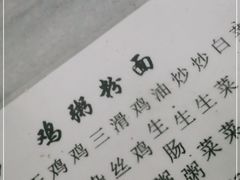 鸡粥粉面
鸡鸡三滑鸡油炒炒白
丝鸡生生生菜
粥肠菜菜